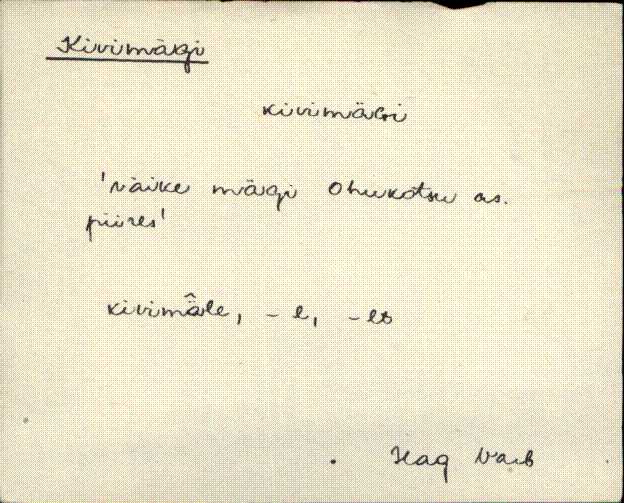 Kivimägi
kivimäGi
'väike mägi Ohukotsu as.
piires'
kivimä̂le, – l, – ls
Hag